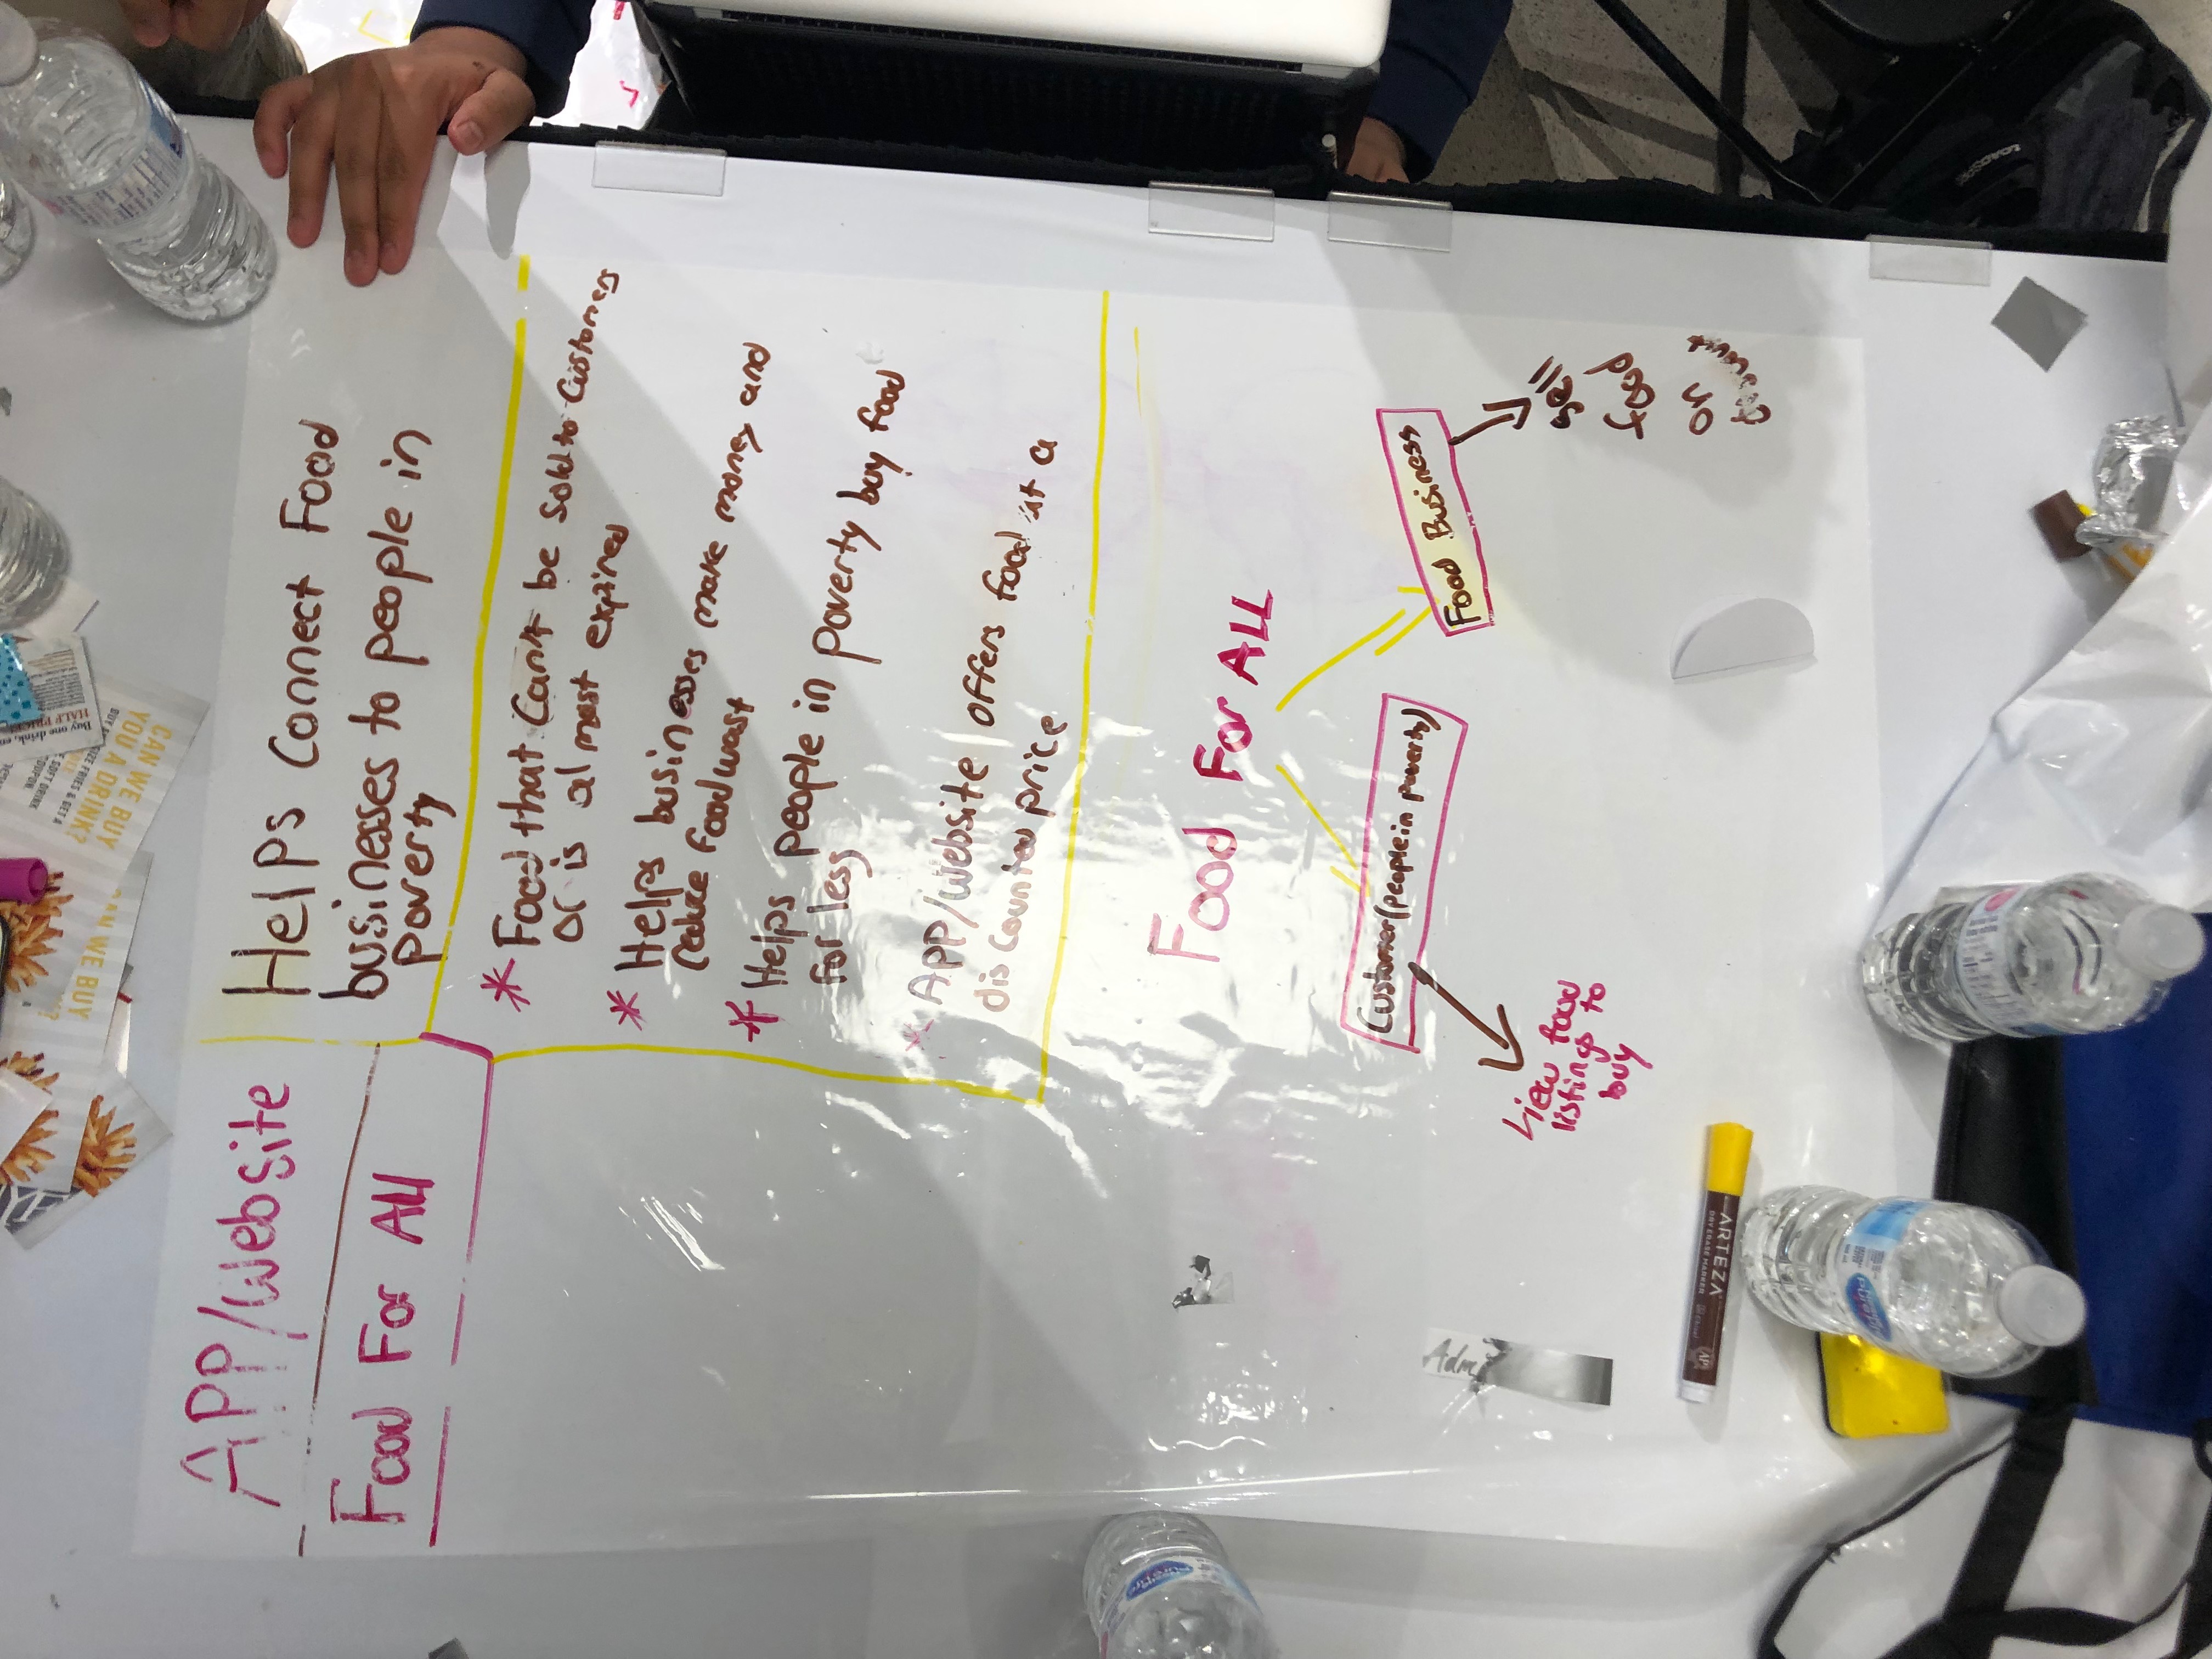 APP/website
Food For All
Helps Connect Food
businesses to people in
Poverty
* Food that Can't be sold to Customers
Or is almost expired
* Helps businesses make money and
reduce food wast
* Helps people in Poverty buy food
for less
* APP/website offers food at a
discounted price
Food For ALL
Customer(people in poverty)
Food Business
View food
listings to
buy
sell
food
on
Adm
ARTEZA
DRY ERASE MARKER
CAN WE BUY
YOU A DRINK?
Buy one drink,
HALF PRICE
CAN WE BUY
LOADSTAR